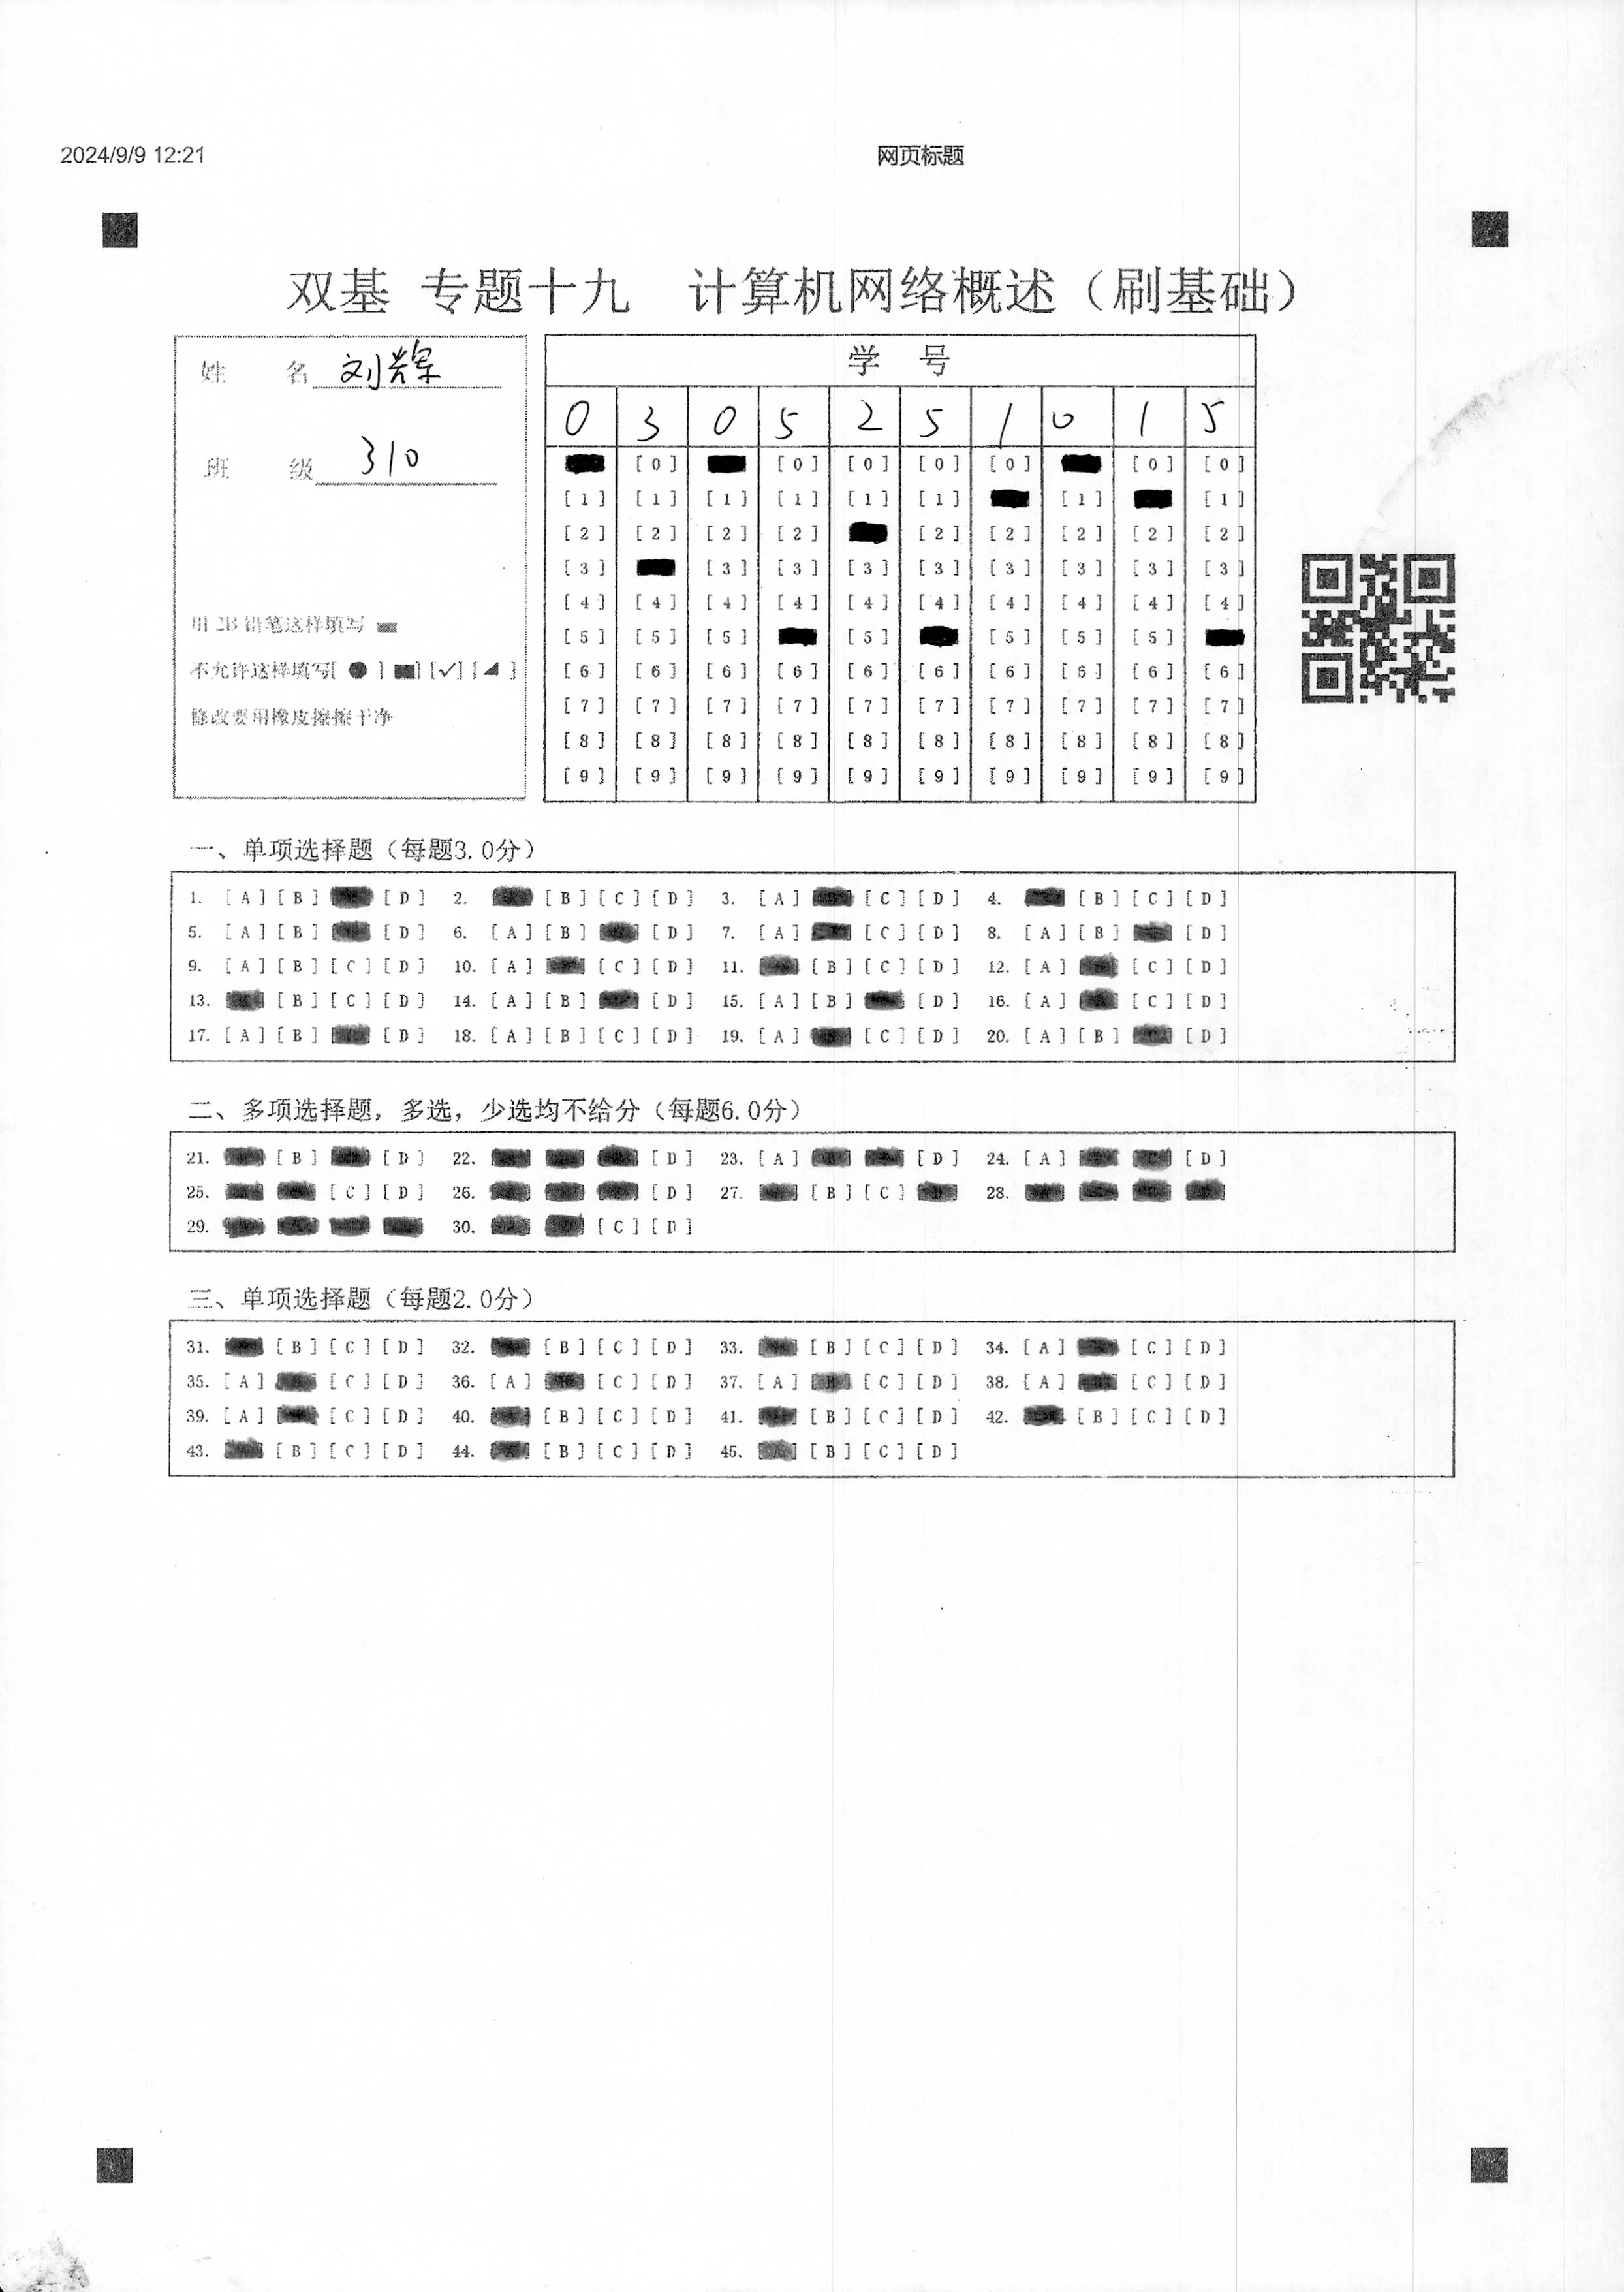 2024/9/9 12:21 网页标题
双基 专题十九 计算机网络概述（刷基础）
姓 名 刘辉
班 级 310
用 2B 铅笔这样填写
不允许这样填写[ ● ] [■] [✓] [◢ ]
修改要用橡皮擦擦干净
学 号
0 3 0 5 2 5 1 0 1 5
[0] [0] [0] [0] [0] [0] [0]
[1] [1] [1] [1] [1] [1] [1] [1]
[2] [2] [2] [2] [2] [2] [2] [2] [2]
[3] [3] [3] [3] [3] [3] [3] [3] [3]
[4] [4] [4] [4] [4] [4] [4] [4] [4] [4]
[5] [5] [5] [5] [5] [5] [5]
[6] [6] [6] [6] [6] [6] [6] [6] [6] [6]
[7] [7] [7] [7] [7] [7] [7] [7] [7] [7]
[8] [8] [8] [8] [8] [8] [8] [8] [8] [8]
[9] [9] [9] [9] [9] [9] [9] [9] [9] [9]
一、单项选择题（每题3.0分）
1. [A] [B] [D] 2. [B] [C] [D] 3. [A] [C] [D] 4. [B] [C] [D]
5. [A] [B] [D] 6. [A] [B] [D] 7. [A] [C] [D] 8. [A] [B] [D]
9. [A] [B] [C] [D] 10. [A] [C] [D] 11. [B] [C] [D] 12. [A] [C] [D]
13. [B] [C] [D] 14. [A] [B] [D] 15. [A] [B] [D] 16. [A] [C] [D]
17. [A] [B] [D] 18. [A] [B] [C] [D] 19. [A] [C] [D] 20. [A] [B] [D]
二、多项选择题，多选，少选均不给分（每题6.0分）
21. [B] [D] 22. [D] 23. [A] [D] 24. [A] [D]
25. [C] [D] 26. [D] 27. [B] [C] 28.
29. 30. [C] [D]
三、单项选择题（每题2.0分）
31. [B] [C] [D] 32. [B] [C] [D] 33. [B] [C] [D] 34. [A] [C] [D]
35. [A] [C] [D] 36. [A] [C] [D] 37. [A] [B] [C] [D] 38. [A] [C] [D]
39. [A] [C] [D] 40. [B] [C] [D] 41. [B] [C] [D] 42. [B] [C] [D]
43. [B] [C] [D] 44. [B] [C] [D] 45. [A] [B] [C] [D]